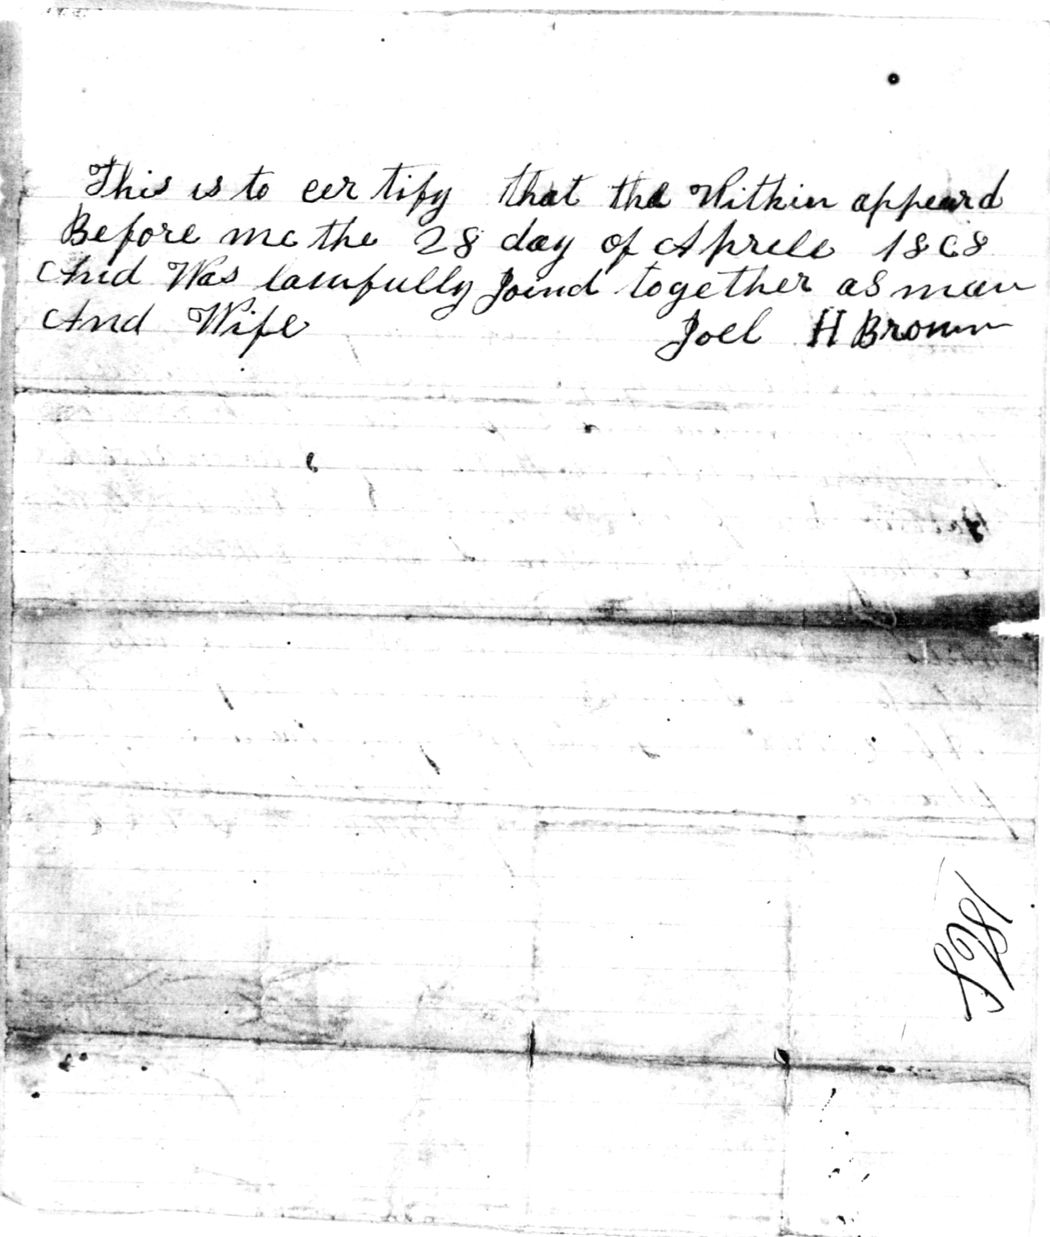 This is to certify that the Within appeard
Before me the 28 day of Aprele 1868
And Was lawfully Joind together as man
And Wife Joel H Brown
1868